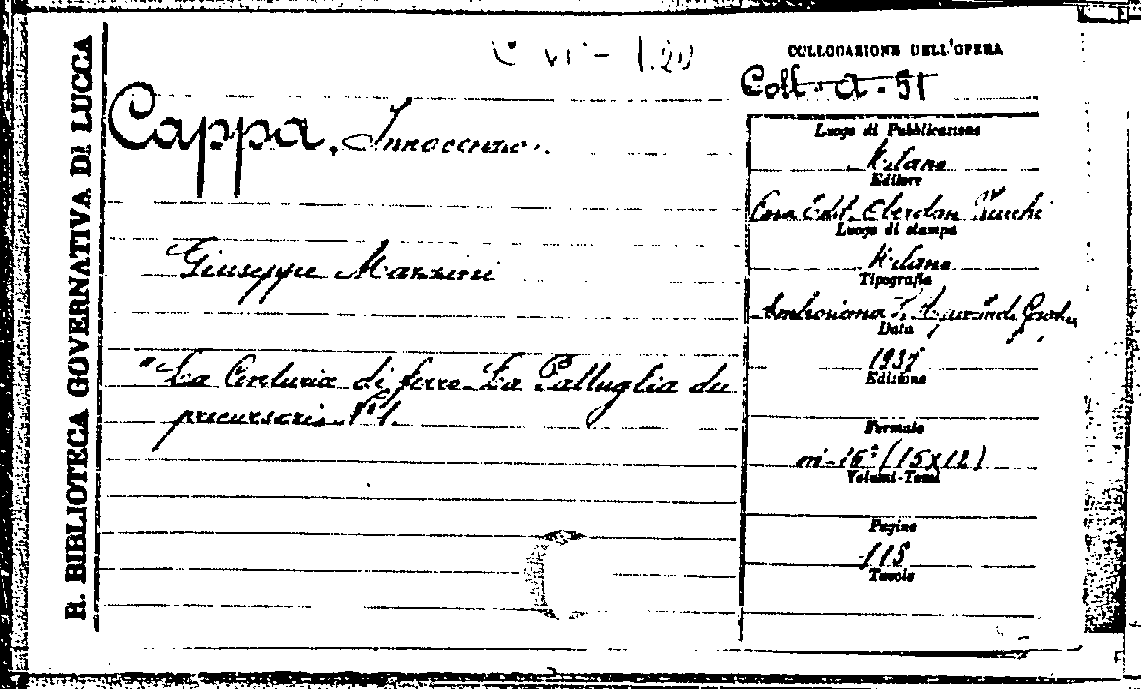 R. BIBLIOTECA GOVERNATIVA DI LUCCA
C VI - 1.20
COLLOCAZIONE DELL'OPERA
Coll. A - 51
Cappa, Innocenzo.
Giuseppe Mazzini
"La Centuria di ferro La Pattuglia dei
precursori. N° 1.
Luogo di Pubblicazione
Milano
Editore
Casa Edit. Oberdan Zucchi
Luogo di stampa
Milano
Tipografia
Data
1937
Edizione
Formato
in-16° (15x12)
Volumi-Tomi
Pagine
115
Tavole